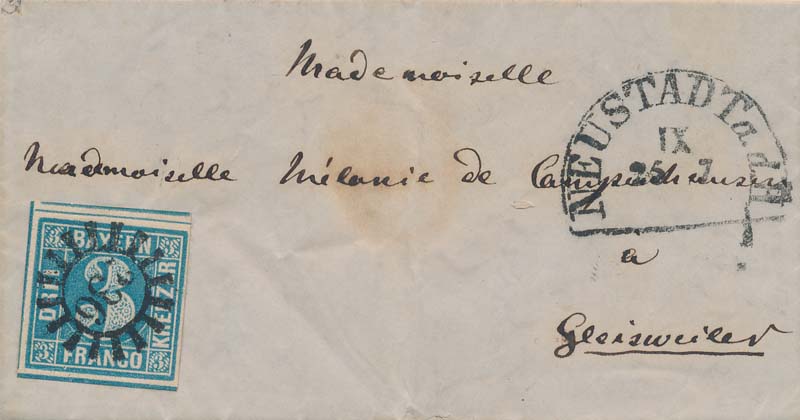 Mademoiselle
Mademoiselle Mélanie de Campenhausen
a
Gleisweiler
NEUSTADT a. d. H
IX
25 7
BAYERN
DREI
KREUZER
FRANCO
3
3
3
3
3